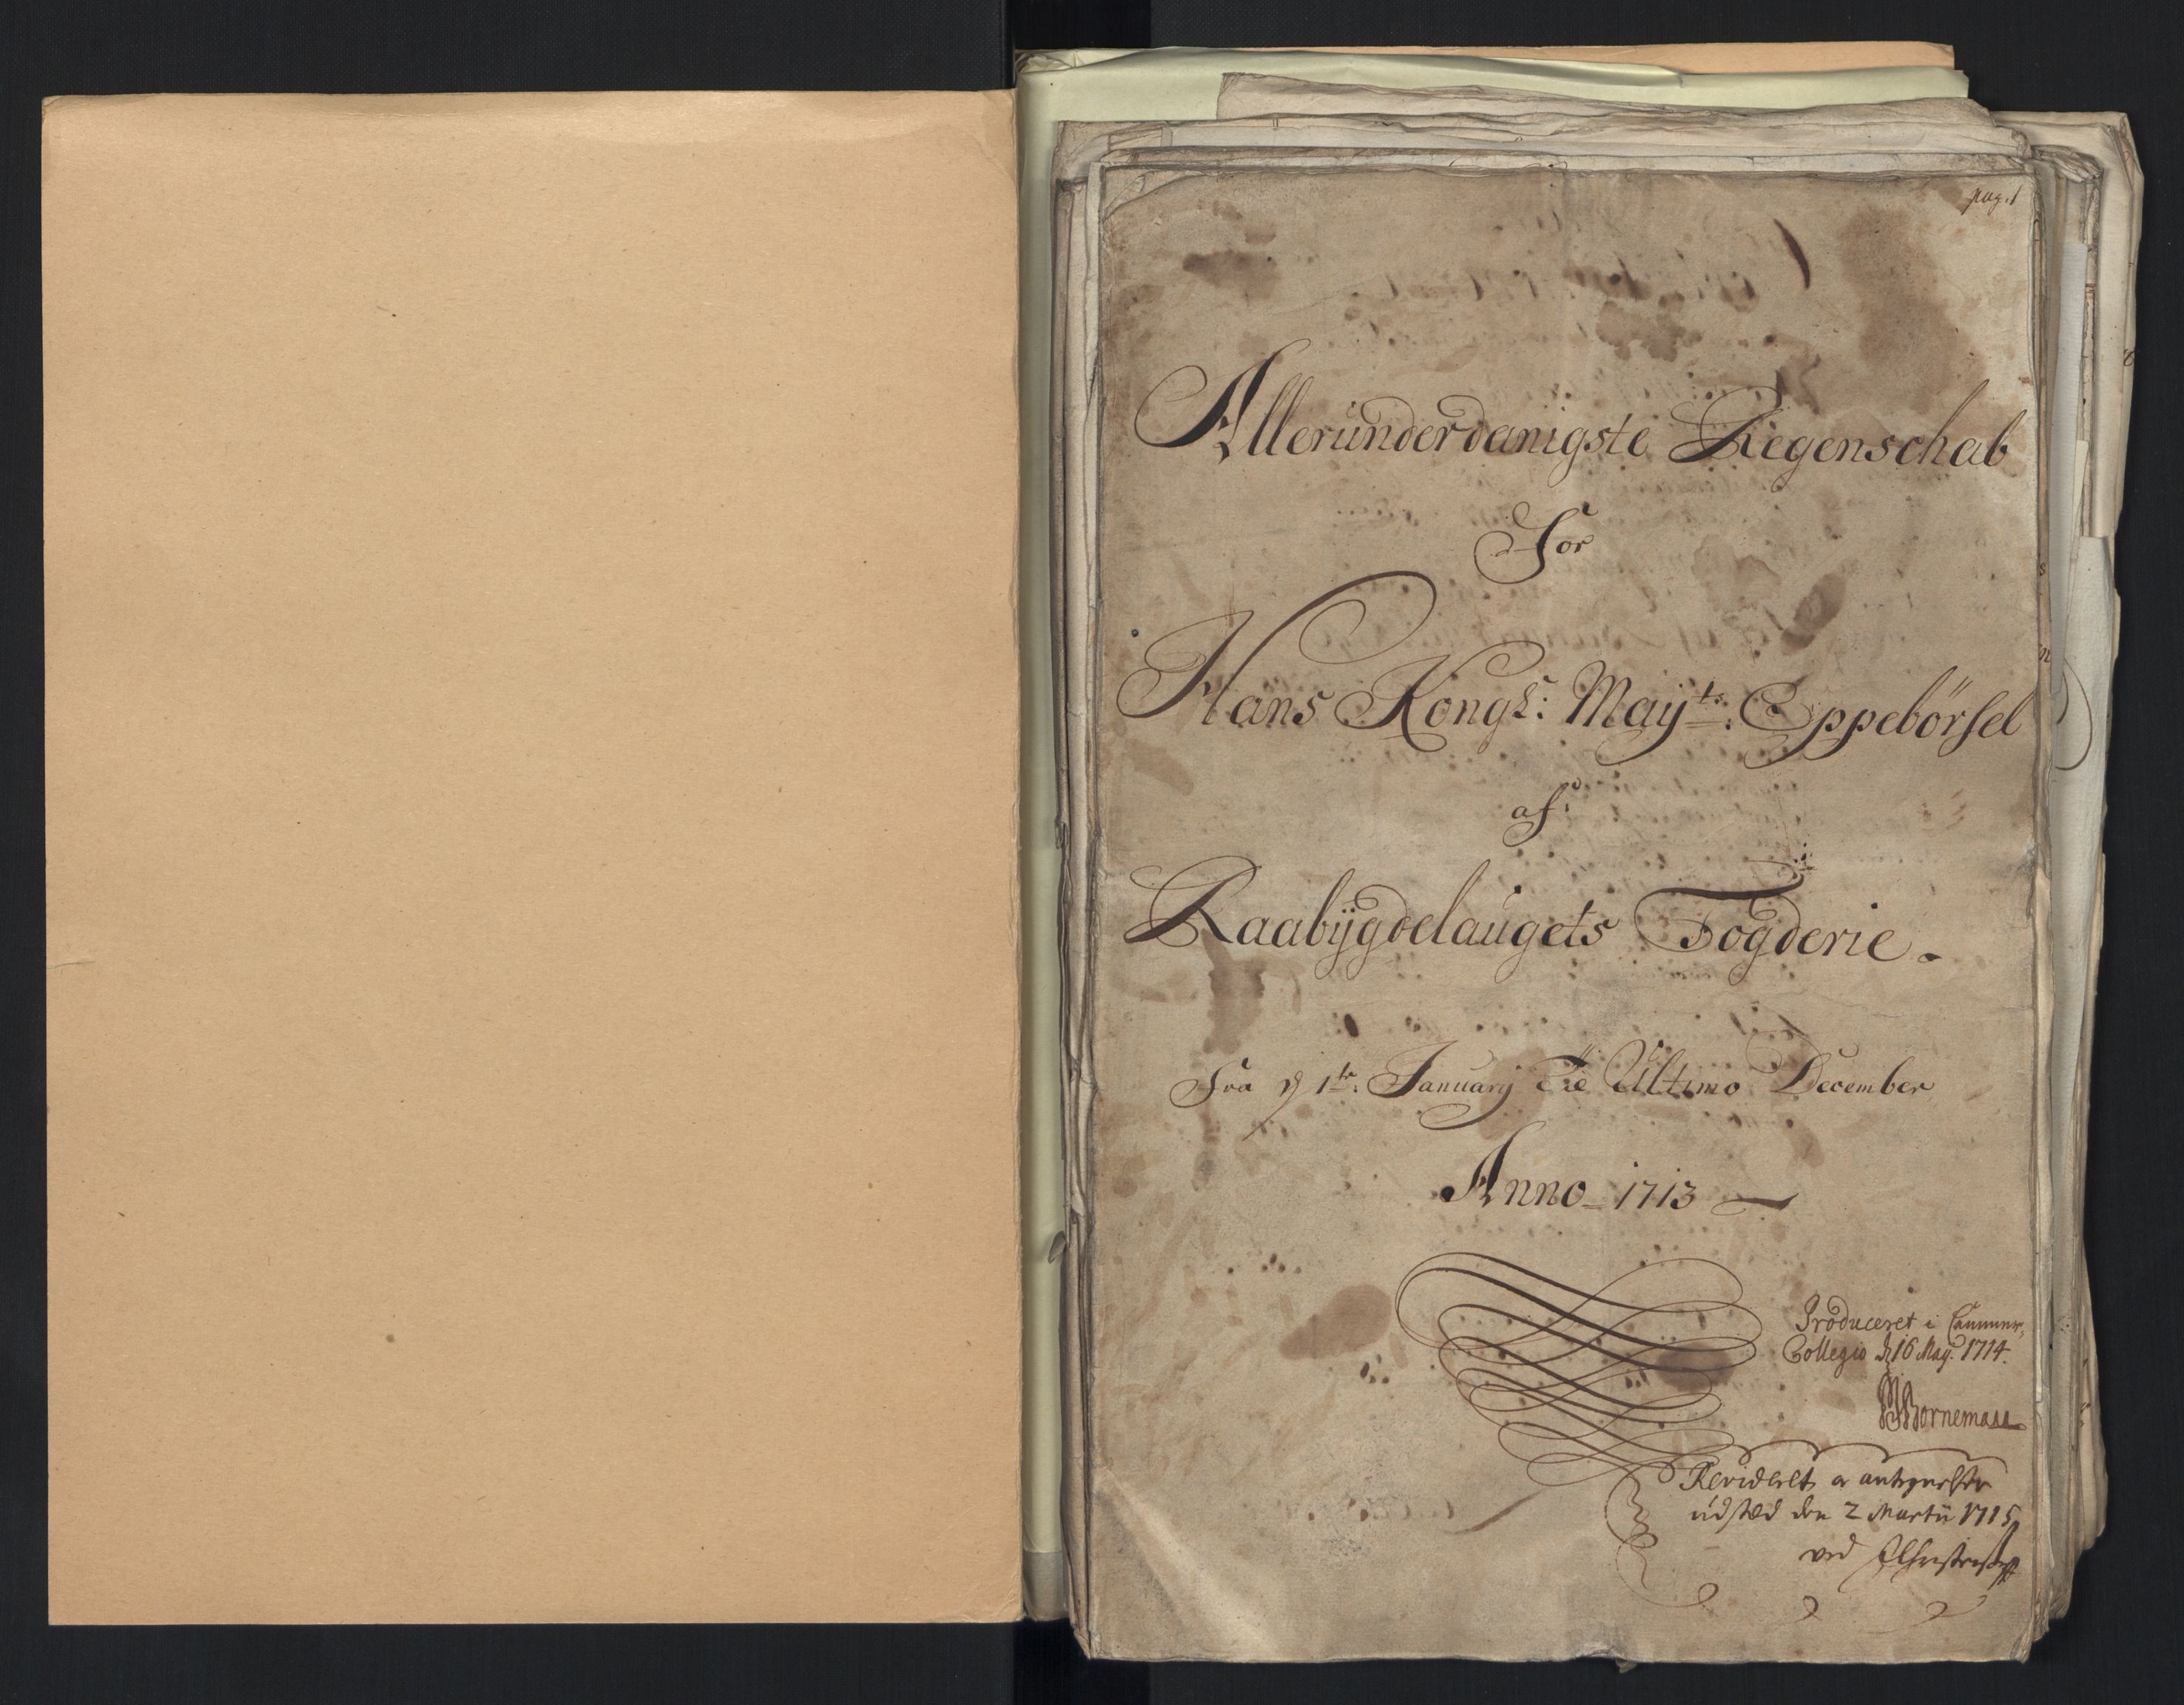 pag. 1
Alleründerdanigste Regenschab
For
Hans Kongl: Maÿts: Oppebörsel
af
Raabÿgdelaugets Fogderie.
Fra d 1te: Januarij Til Ultimo December
Anno 1713
Produceret i Cammer
Collegio d 16 Maÿ. 1714.
Bornemann
Revideret
udsted den 2 Martii 1715
ved